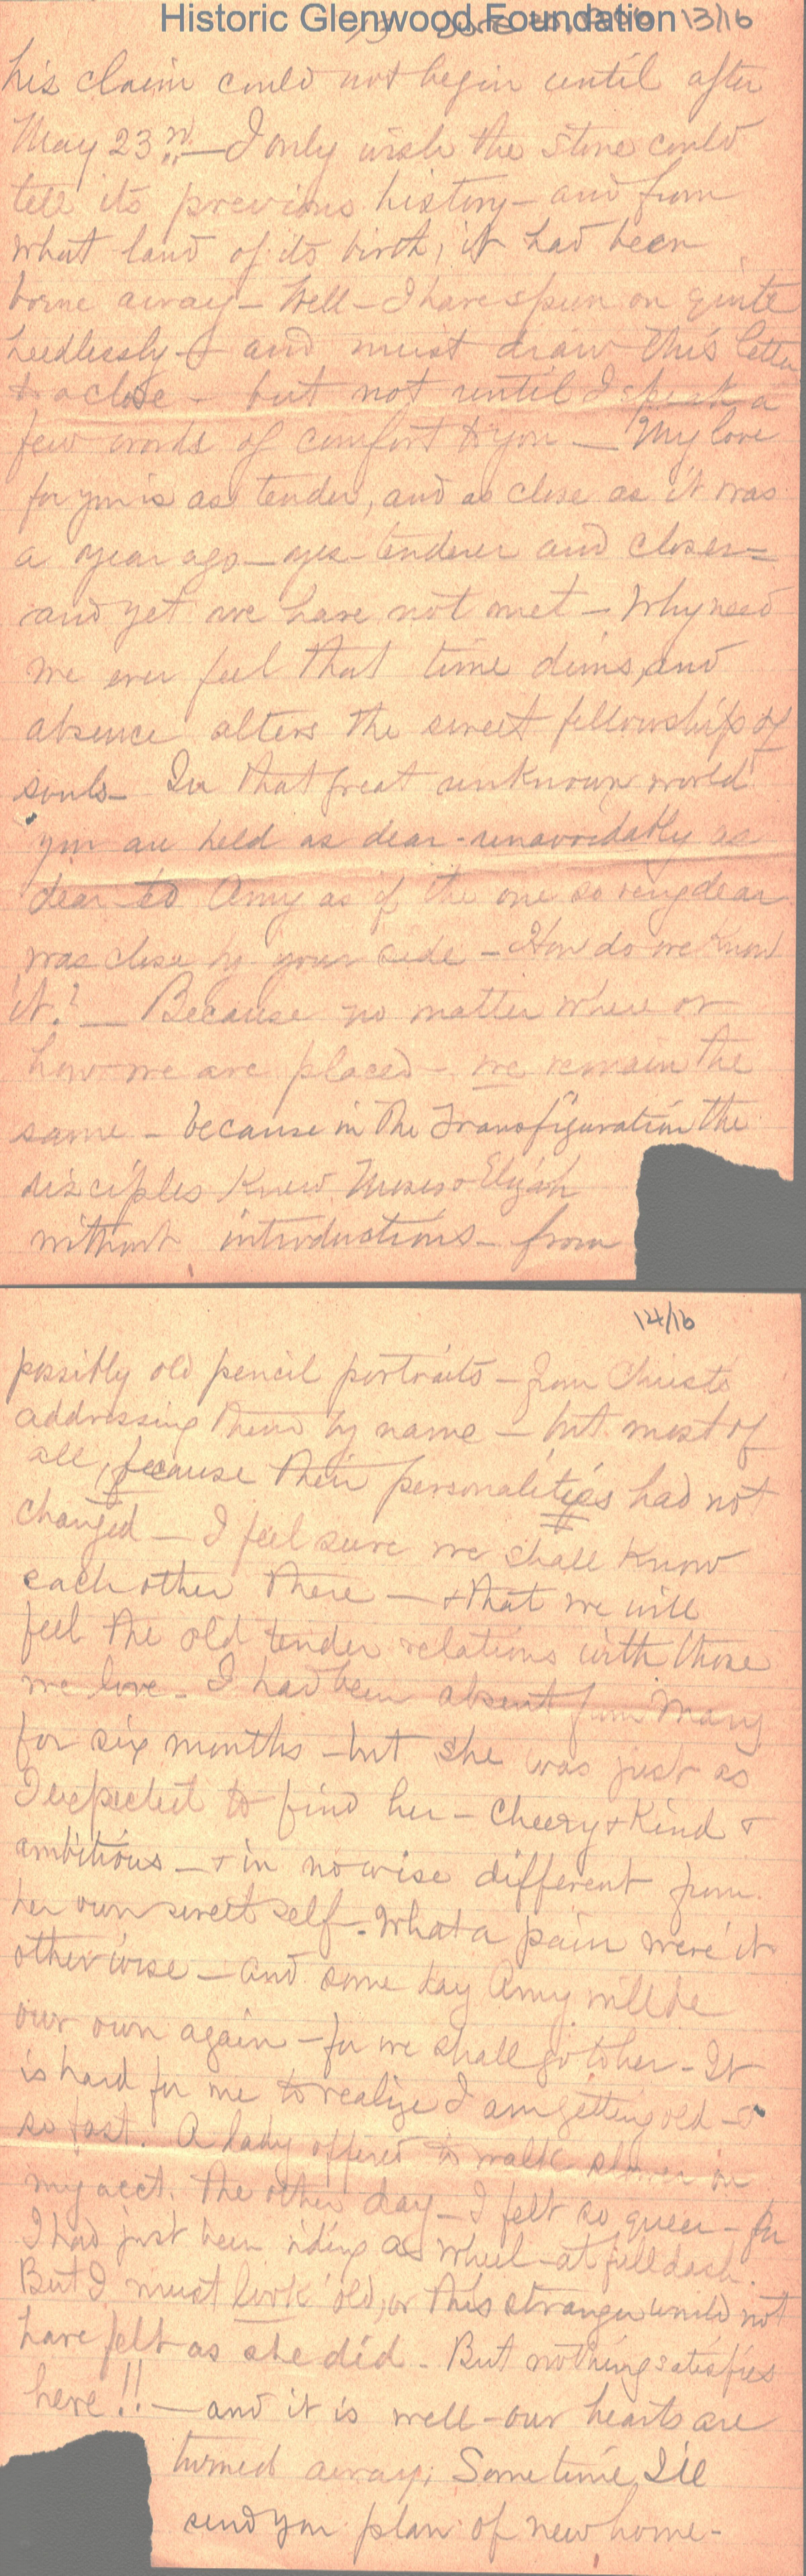 Historic Glenwood Foundation
13/16
his claim could not begin until after
May 23rd — I only wish the stone could
tell its previous history — and from
what land of its birth, it had been
borne away — Well — I have spun on quite
heedlessly — and must draw this letter
to a close — but not until I speak a
few words of comfort to you — My love
for you is as tender, and as close as it was
a year ago — yes — tenderer and closer =
and yet we have not met — Why need
we ever feel that time dims, and
absence alters the sweet fellowship of
souls — In that great unknown world
you are held as dear - unavoidably as
dear to Amy as if the one so very dear
was close by your side — How do we know
it? — Because no matter where or
how we are placed — we remain the
same — because in the Transfiguration the
disciples knew Moses & Elijah
without introductions — from
14/16
possibly old pencil portraits — from Christs
addressing them by name — but most of
all, because their personalities had not
changed — I feel sure we shall know
each other there — & that we will
feel the old tender relations with those
we love — I had been absent from Mary
for six months — but she was just as
I expected to find her — Cheery & Kind &
ambitious — & in no wise different from
her own sweet self — What a pain were it
otherwise — and some day Amy will be
our own again — for we shall go to her — It
is hard for me to realize I am getting old — &
so fast. A lady offered to walk slower on
my acct. the other day — I felt so queer — for
I had just been riding a wheel — at full dash.
But I must look old, or this stranger would not
have felt as she did — But nothing satisfies
here!! — and it is well — our hearts are
turned away; Sometime I'll
send you plan of new home —